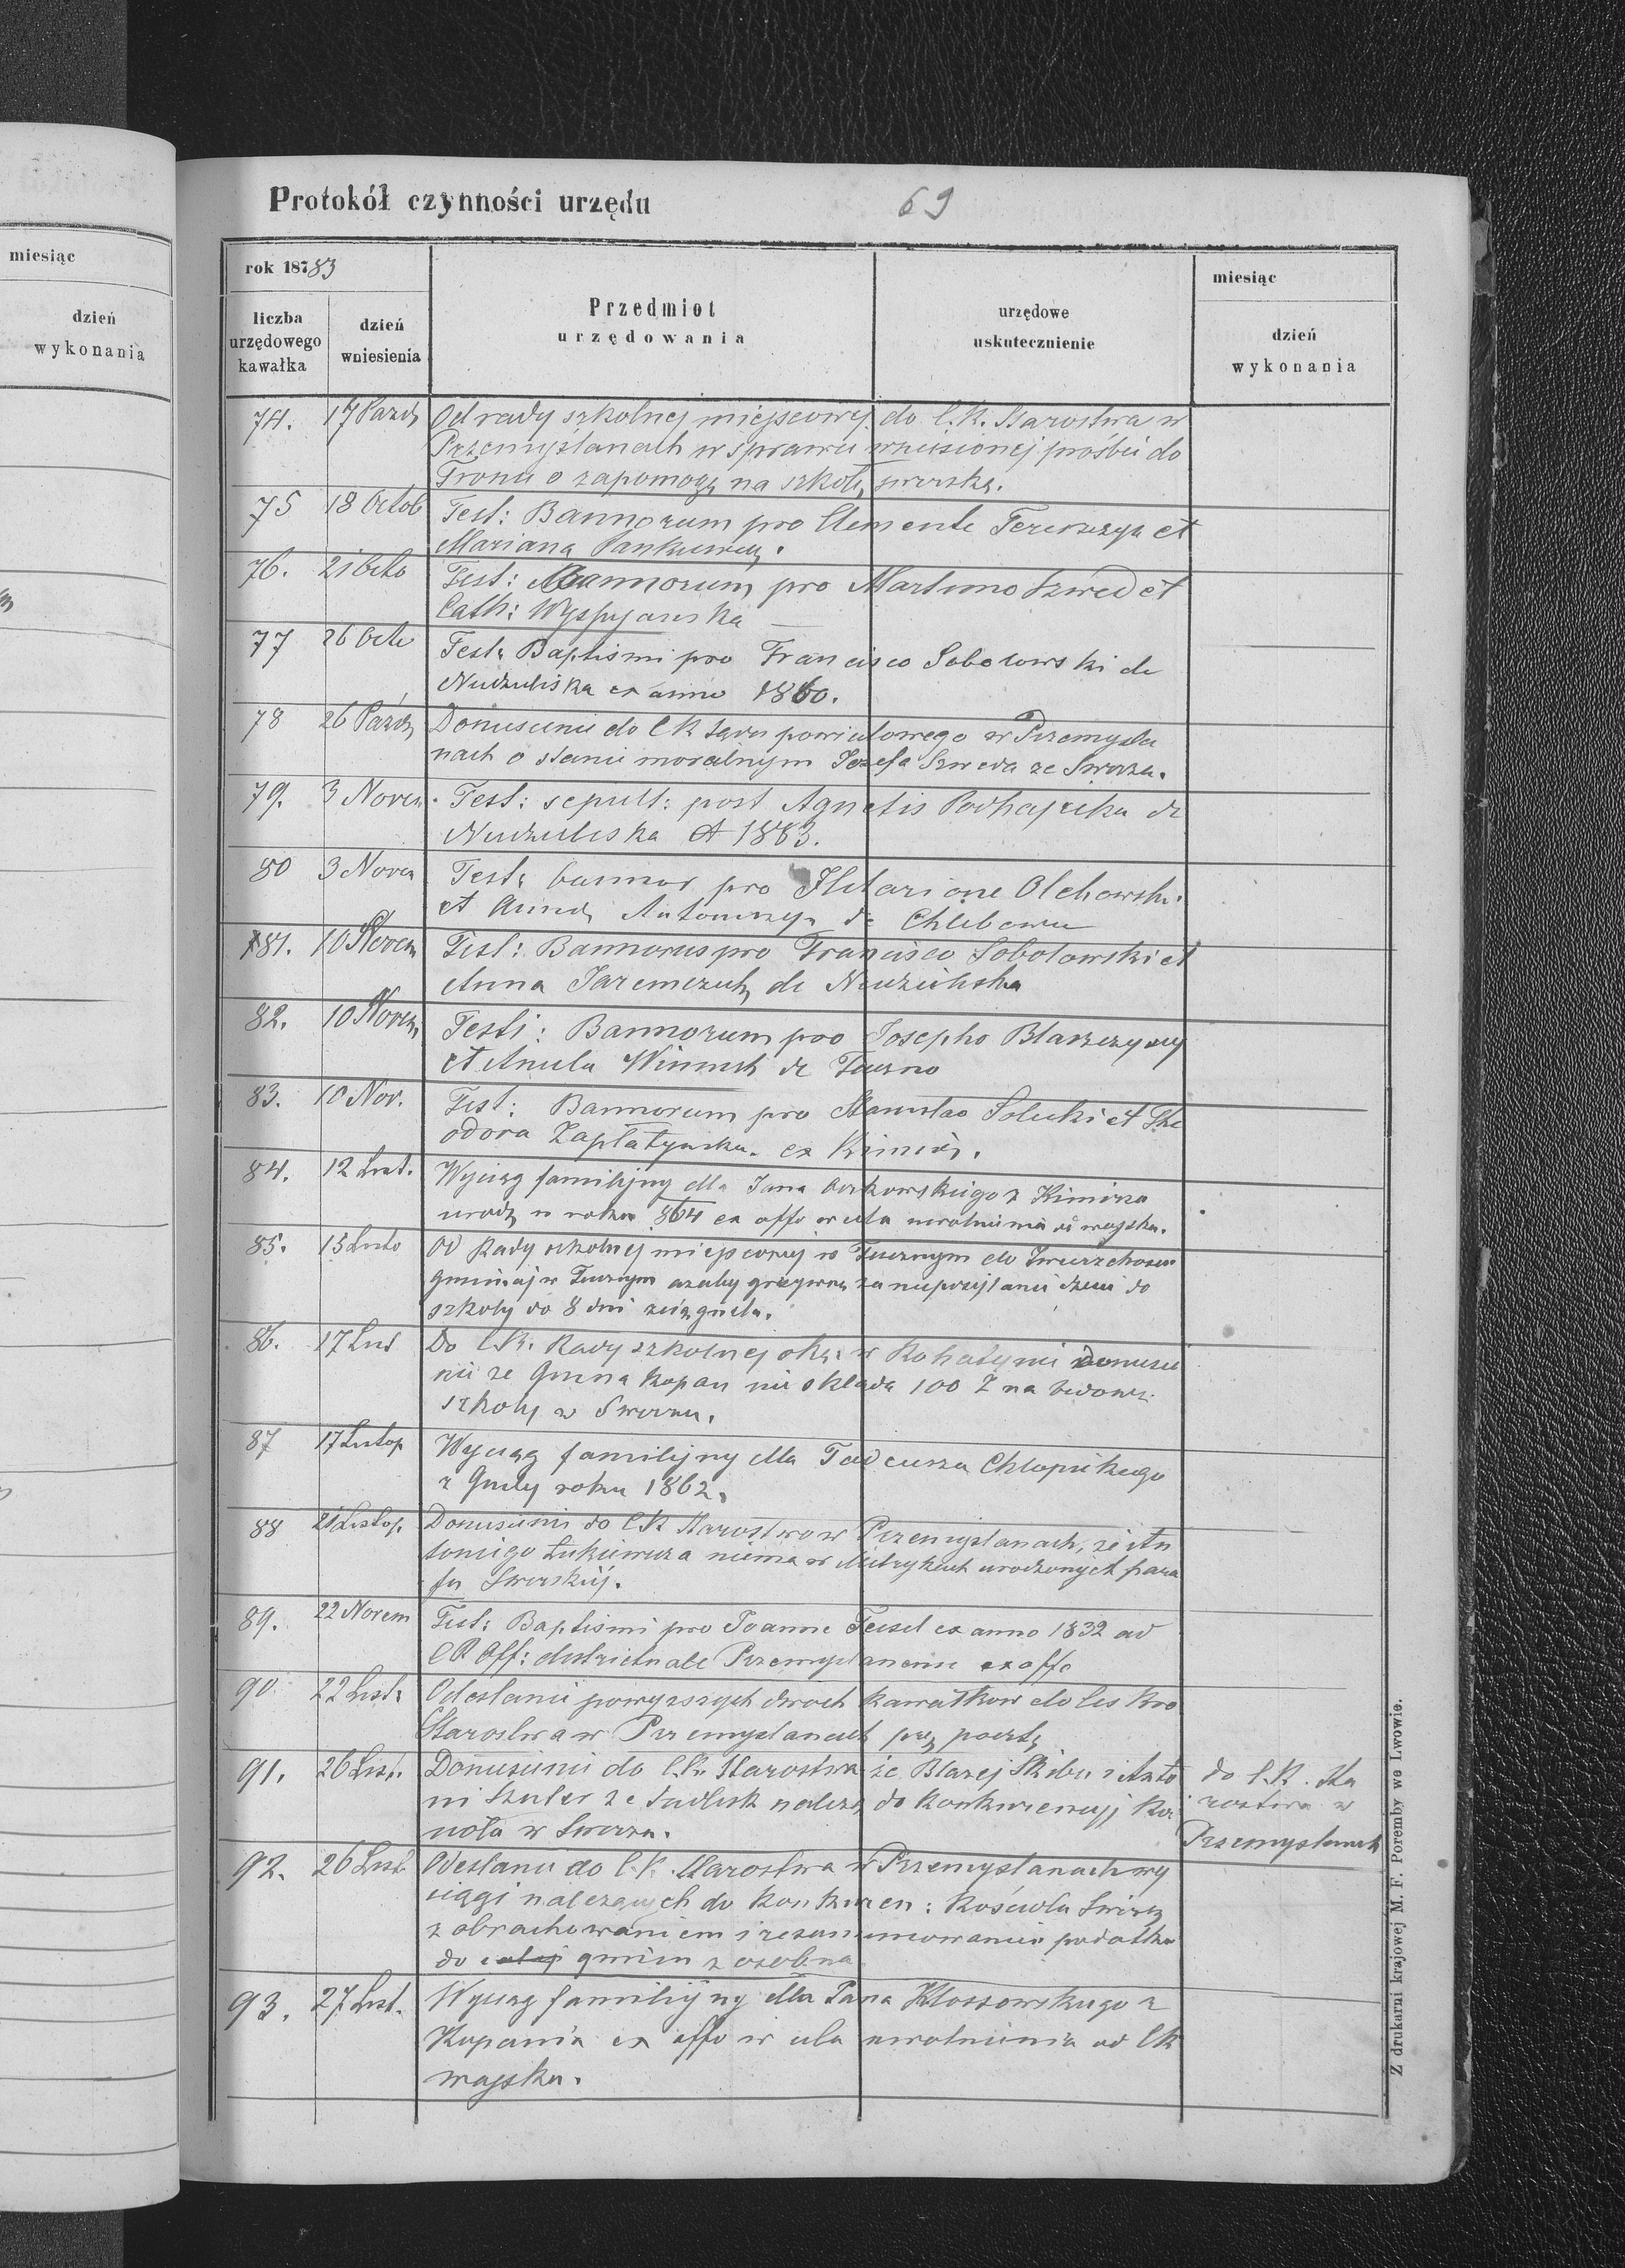 miesiąc
dzień
wykonania
Protokół czynności urzędu
69
rok 187 83
liczba urzędowego kawałka
dzień wniesienia
Przedmiot urzędowania
urzędowe uskutecznienie
miesiąc
dzień wykonania
74. 17 Paźdz Od rady szkolnej miejscowej do C.K. Starostwa w
Przemyślanach w sprawie wniesionej prośbie do
Tronu o zapomogę na szkołę swirską.
75 18 Octob Test: Bannorum pro Clemente et
Mariana
76. 21 Octo Test: Bannorum pro Martino Szwed et
Cath: Wyspyanska
77 26 Octo Test: Baptismi pro Francisco Sobolowski de
Niedzieliska ex anno 1860.
78 26 Paźdz Doniesienie do CK Sądu powiatowego w Przemyśla
nach o stanie moralnym Józefa Szweda ze Swirza.
79. 3 Novem. Test: sepult: post Agnetis Podhajecka de
Niedzieliska A 1883.
80 3 Novem Test: bannor pro Hilarione Olchowski
et Anna de Chlebowice
81. 10 Novem Test: Bannorus pro Francisco Sobolowski et
Anna Jaremczuk de Niedzieliska
82. 10 Novem Testi: Bannorum pro Josepho
et Aniela de Tuczno
83. 10 Nov. Test: Bannorum pro Stanislao et The
odora Zaplatynska ex Kimirz.
84. 12 List. Wyciąg familijny dla Jana z Kimirza
urodz w roku 864 ex offo w celu uwolnienia od wojska.
85. 15 Listo Od Rady szkolnej miejscowej w Tucznym do Zwierzchności
Gminnej w Tucznym ażeby grzywnę za nieposyłanie dzieci do
szkoły do 8 dni ściągnęła.
86. 17 List Do C.K. Rady szkolnej okr. w Rohatynie doniesie
nie ze Gmina Kopan nie składa 100 Z na budowę
szkoły w Swirzu.
87 17 Listop Wyciąg familijny dla Tadeusza
z roku 1862.
88 21 Listop. Doniesienie do CK Starostwo w Przemyślanach, że An
toniego Łukiewicza niema w Metrykach urodzonych para
fii Swirskiej.
89. 22 Novem Test: Baptismi pro Joanne Teisel ex anno 1832 ad
CR Off: districtuale Przemyslanense ex offo
90 22 List: Odesłanie powyższych dwóch kawałków do
Starostwa w Przemyślanach prz pocztę
91. 26 List. Doniesienie do C.K. Starostwa że Błażej Skiba i Anto
ni ze należą do konkurencyj Koś
cioła w Swirzu.
do C.K. Sta
rostwa w
Przemyslanach
92. 26 List Odesłanie do C.K. Starostwa w Przemyślanach wy
ciągi należących do konkuren: Kościoła Swirz
z obrachowaniem i podatku
do gmin z osobna
93. 27 List. Wyciąg familijny dla Jana Kłossowskiego z
Kopania ex offo w celu uwolnienia od CK
wojska.
Z drukarni krajowej M. F. Poremby we Lwowie.